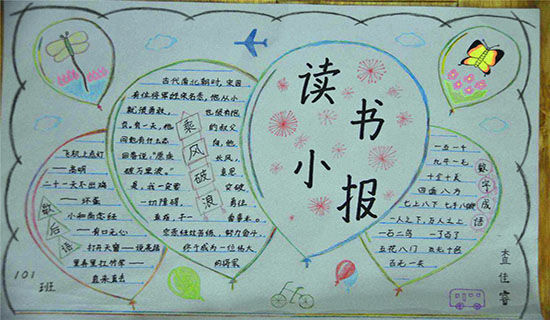 读书
小报
乘风破浪
古代南北朝时,宋国
有位将军姓宗名悫,他从小
就很勇敢,也很有抱
负。有一天,他的叔父
问他有什么志向,他
回答说:"愿乘长风,
破万里浪。"意思
是,我一定要突破
一切障碍,勇往
直前,干一番事业。
宗悫经过苦练,努力奋斗,
终于成为一位伟大
的将军
歇后语
飞机上点灯
——高明
二十一天不出鸡
——坏蛋
小和尚念经
——有口无心
打开天窗——说亮话
里弄里扛竹竿——
直来直去
数字成语
一五一十
九牛一毛
十全十美
四面八方
七上八下
一人之下,万人之上
一石二鸟
一了百了
五花八门
五光十色
百无一失
101
班
查佳睿